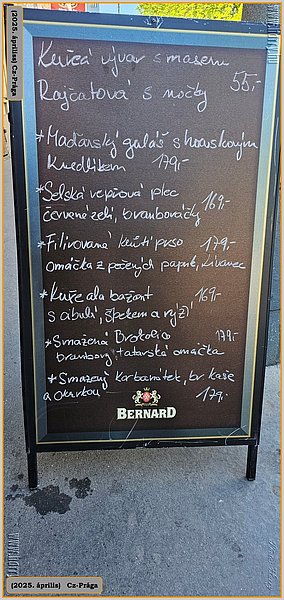 (2025. április) Cz-Prága
Kuřecí vývar s masem
Rajčatová s nočky 55,-
*Maďarský guláš s houskovým
Knedlíkem 179,-
*Selská vepřová plec 169,-
červené zelí, bramboráčky
*Filírované kuřecí prso 179,-
omáčka z pečených paprik, Lívanec
*Kuře ala bažant 169,-
s cibulí, špekem a rýží
*Smažená Brokolice 179,-
brambory, tatarská omáčka
*Smažený Karbanátek, br. kaše
a okurkou 179,-
BERNARD
(2025. április) Cz-Prága